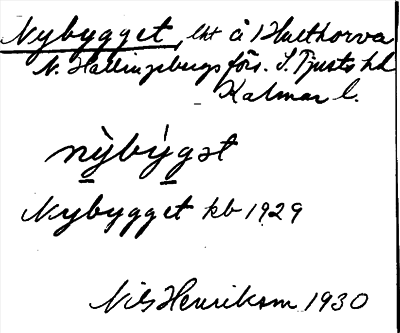 Nybygget, lht å Hulthorva
N. Hallingebergs förs. S. Tjusts hd
Kalmar l.
nỳbýgət
Nybygget kb 1929
Nils Henrikson 1930